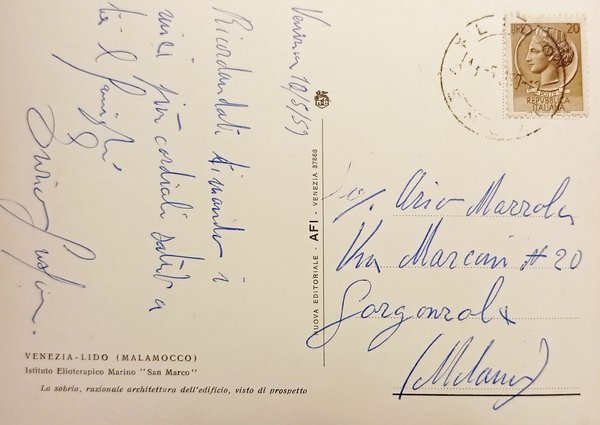 Venezia 10/5/59
Ricordandoti ti mando i
miei più cordiali saluti a
te e famiglia
VENEZIA-LIDO (MALAMOCCO)
Istituto Elioterapico Marino "San Marco"
La sobria, razionale architettura dell'edificio, visto di prospetto
NUOVA EDITORIALE - AFI - VENEZIA 37868
LIRE 20
POSTE
REPVBBLICA
ITALIANA
Sig. Ario Mazzola
Via Marconi N 20
Gorgonzola
(Milano)